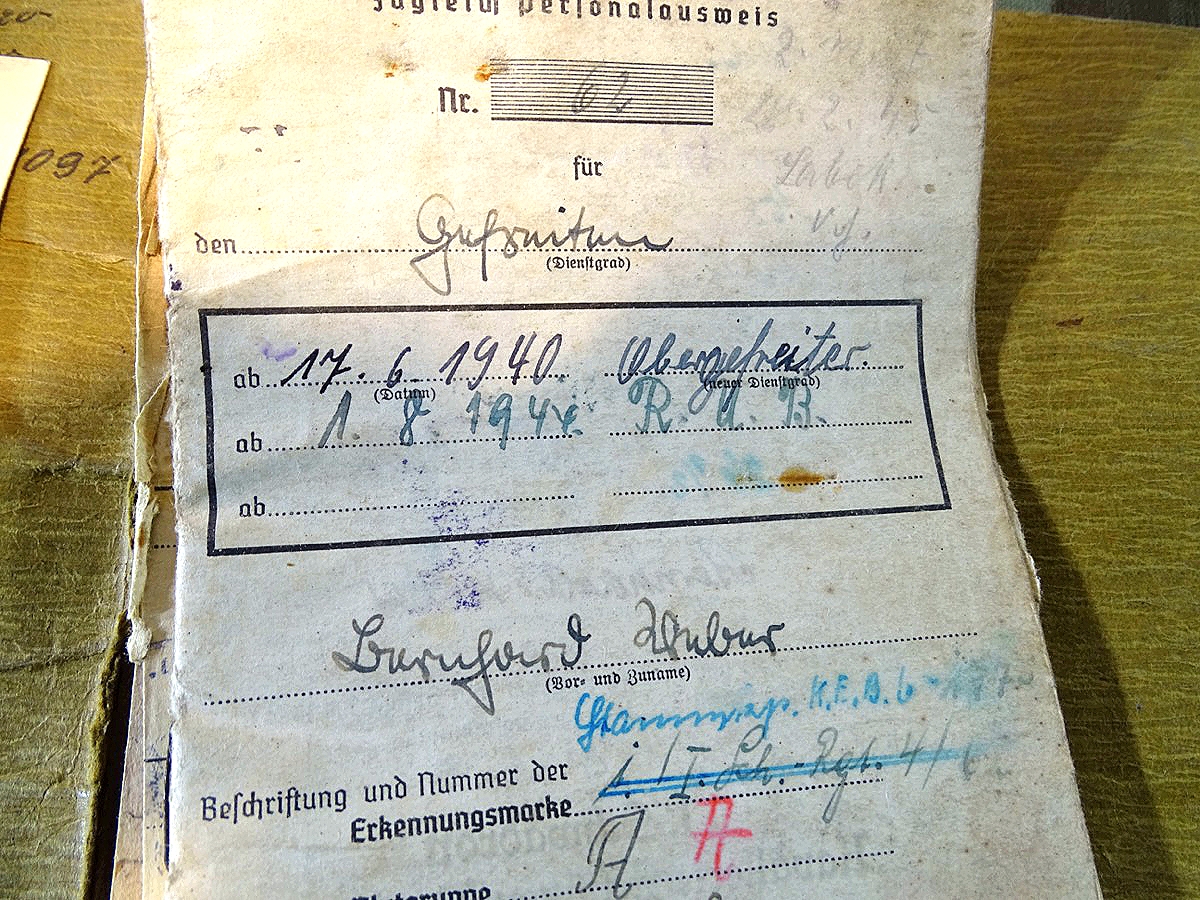 zugleich Personalausweis
Nr. 62
für
den Gefreiten
(Dienstgrad)
ab 17. 6. 1940. Obergefreiter.
(Datum) (neuer Dienstgrad)
ab 1. 8. 1944. R. U. B.
ab
Bernhard Weber
(Vor- und Zuname)
K.E.B. 6
Beschriftung und Nummer der
Erkennungsmarke 1./I. Sch.-Rgt. 4/
A A
Blutgruppe
097